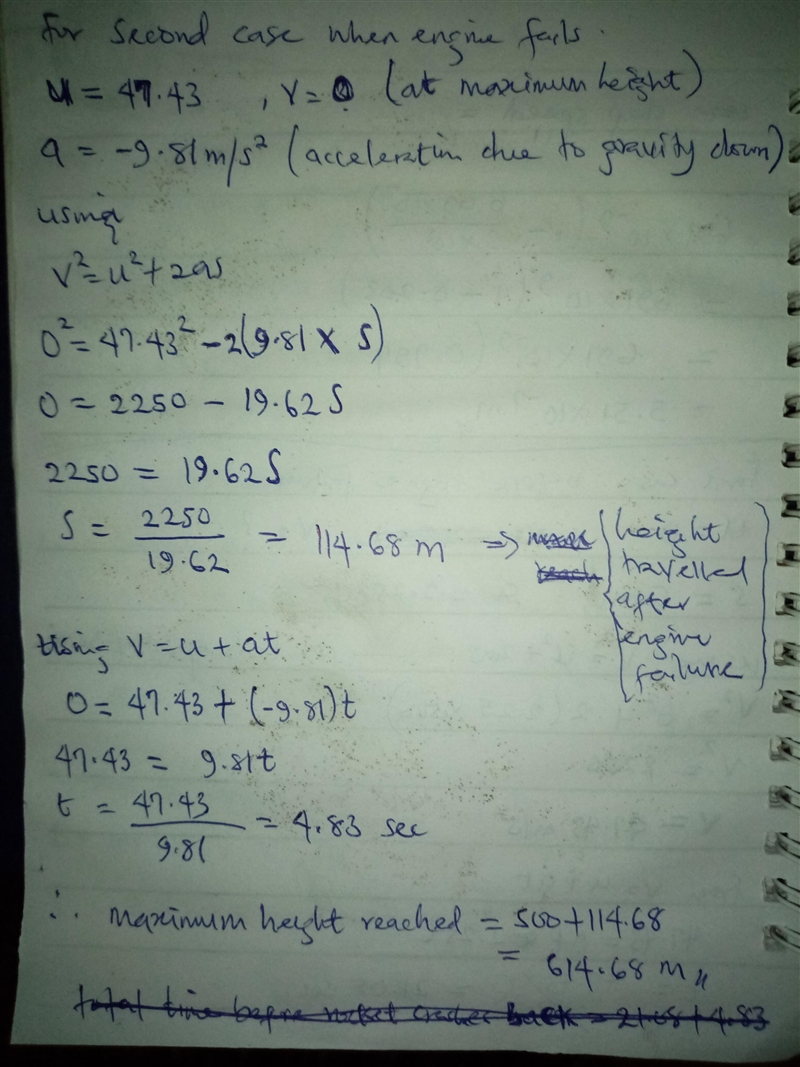 For second case when engine fails.
u = 47.43 , V = 0 (at maximum height)
a = -9.81 m/s² (acceleration due to gravity down)
using
V² = u² + 2as
0² = 47.43² - 2(9.81 × S)
0 = 2250 - 19.62S
2250 = 19.62S
S = 2250/19.62 = 114.68 m ⇒ {height travelled after engine failure}
Using V = u + at
0 = 47.43 + (-9.81)t
47.43 = 9.81t
t = 47.43/9.81 = 4.83 sec
∴ maximum height reached = 500 + 114.68
= 614.68 m,,
total time before rocket crashes back = 21.08 + 4.83